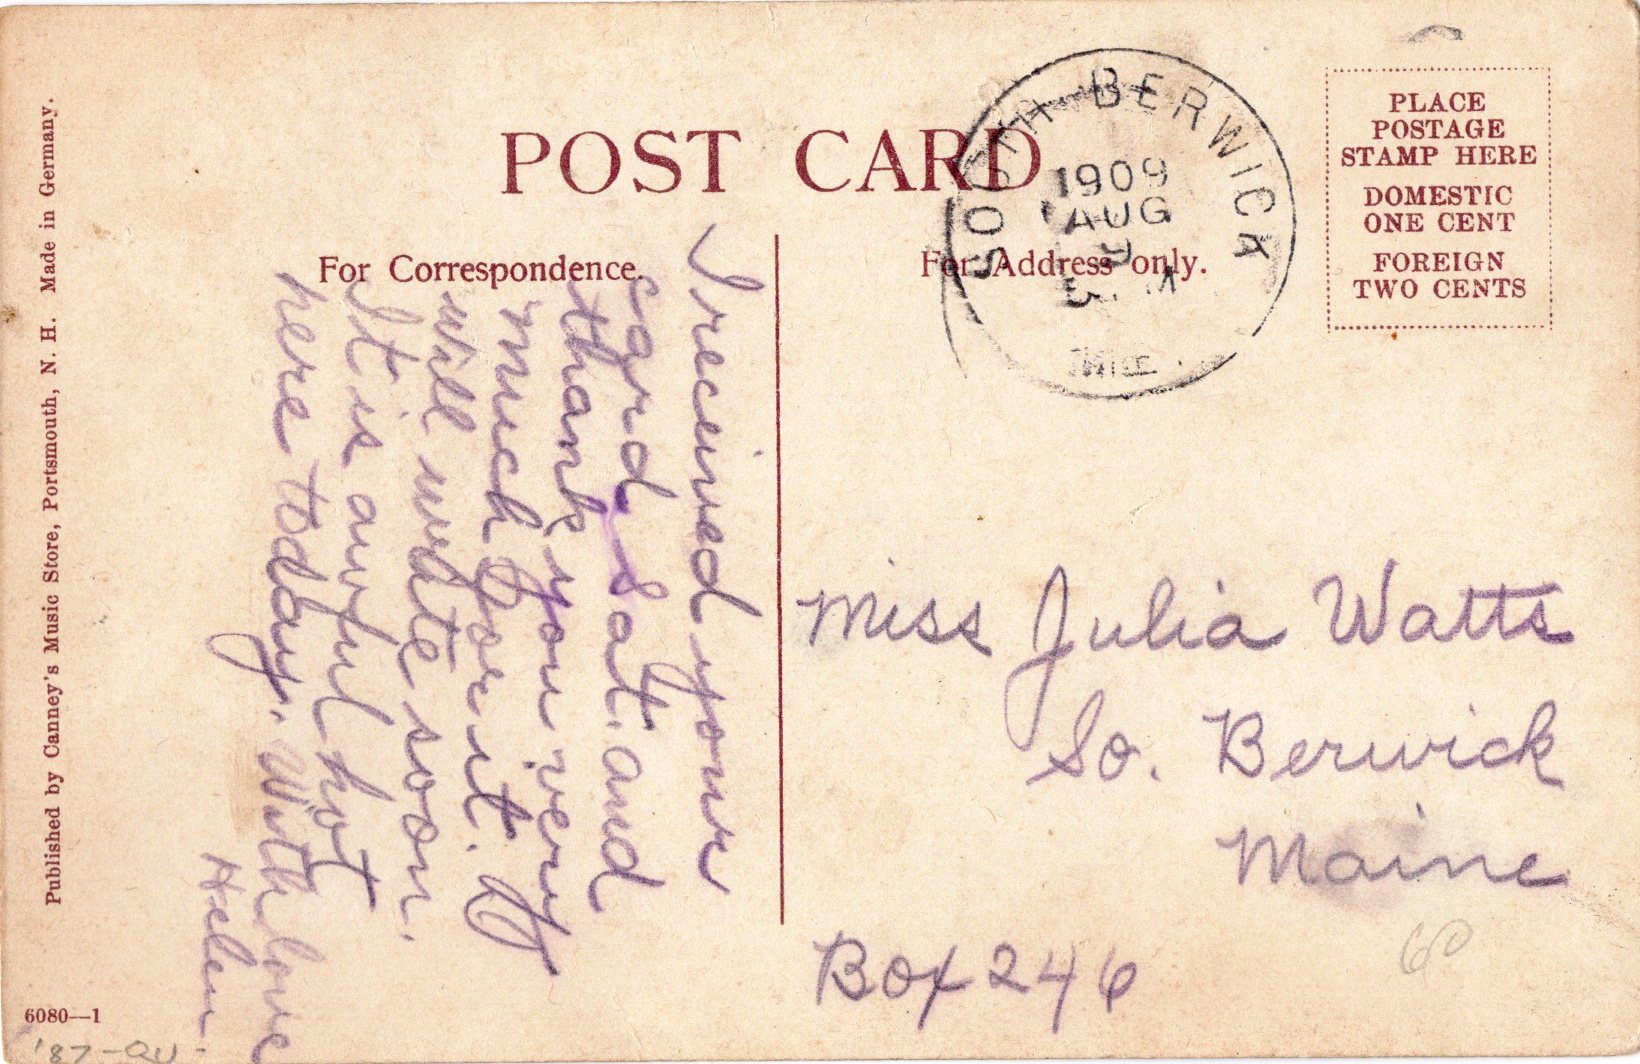 POST CARD
For Correspondence.
For Address only.
SOUTH BERWICK
1909
AUG
PLACE
POSTAGE
STAMP HERE
DOMESTIC
ONE CENT
FOREIGN
TWO CENTS
I received your
card Sat. and
thank you very
much for it. I
will write soon.
It is awful hot
here today. With love
Helen.
Miss Julia Watts
So. Berwick
Maine
Box 246
60
Published by Canney's Music Store, Portsmouth, N. H. Made in Germany.
6080—1